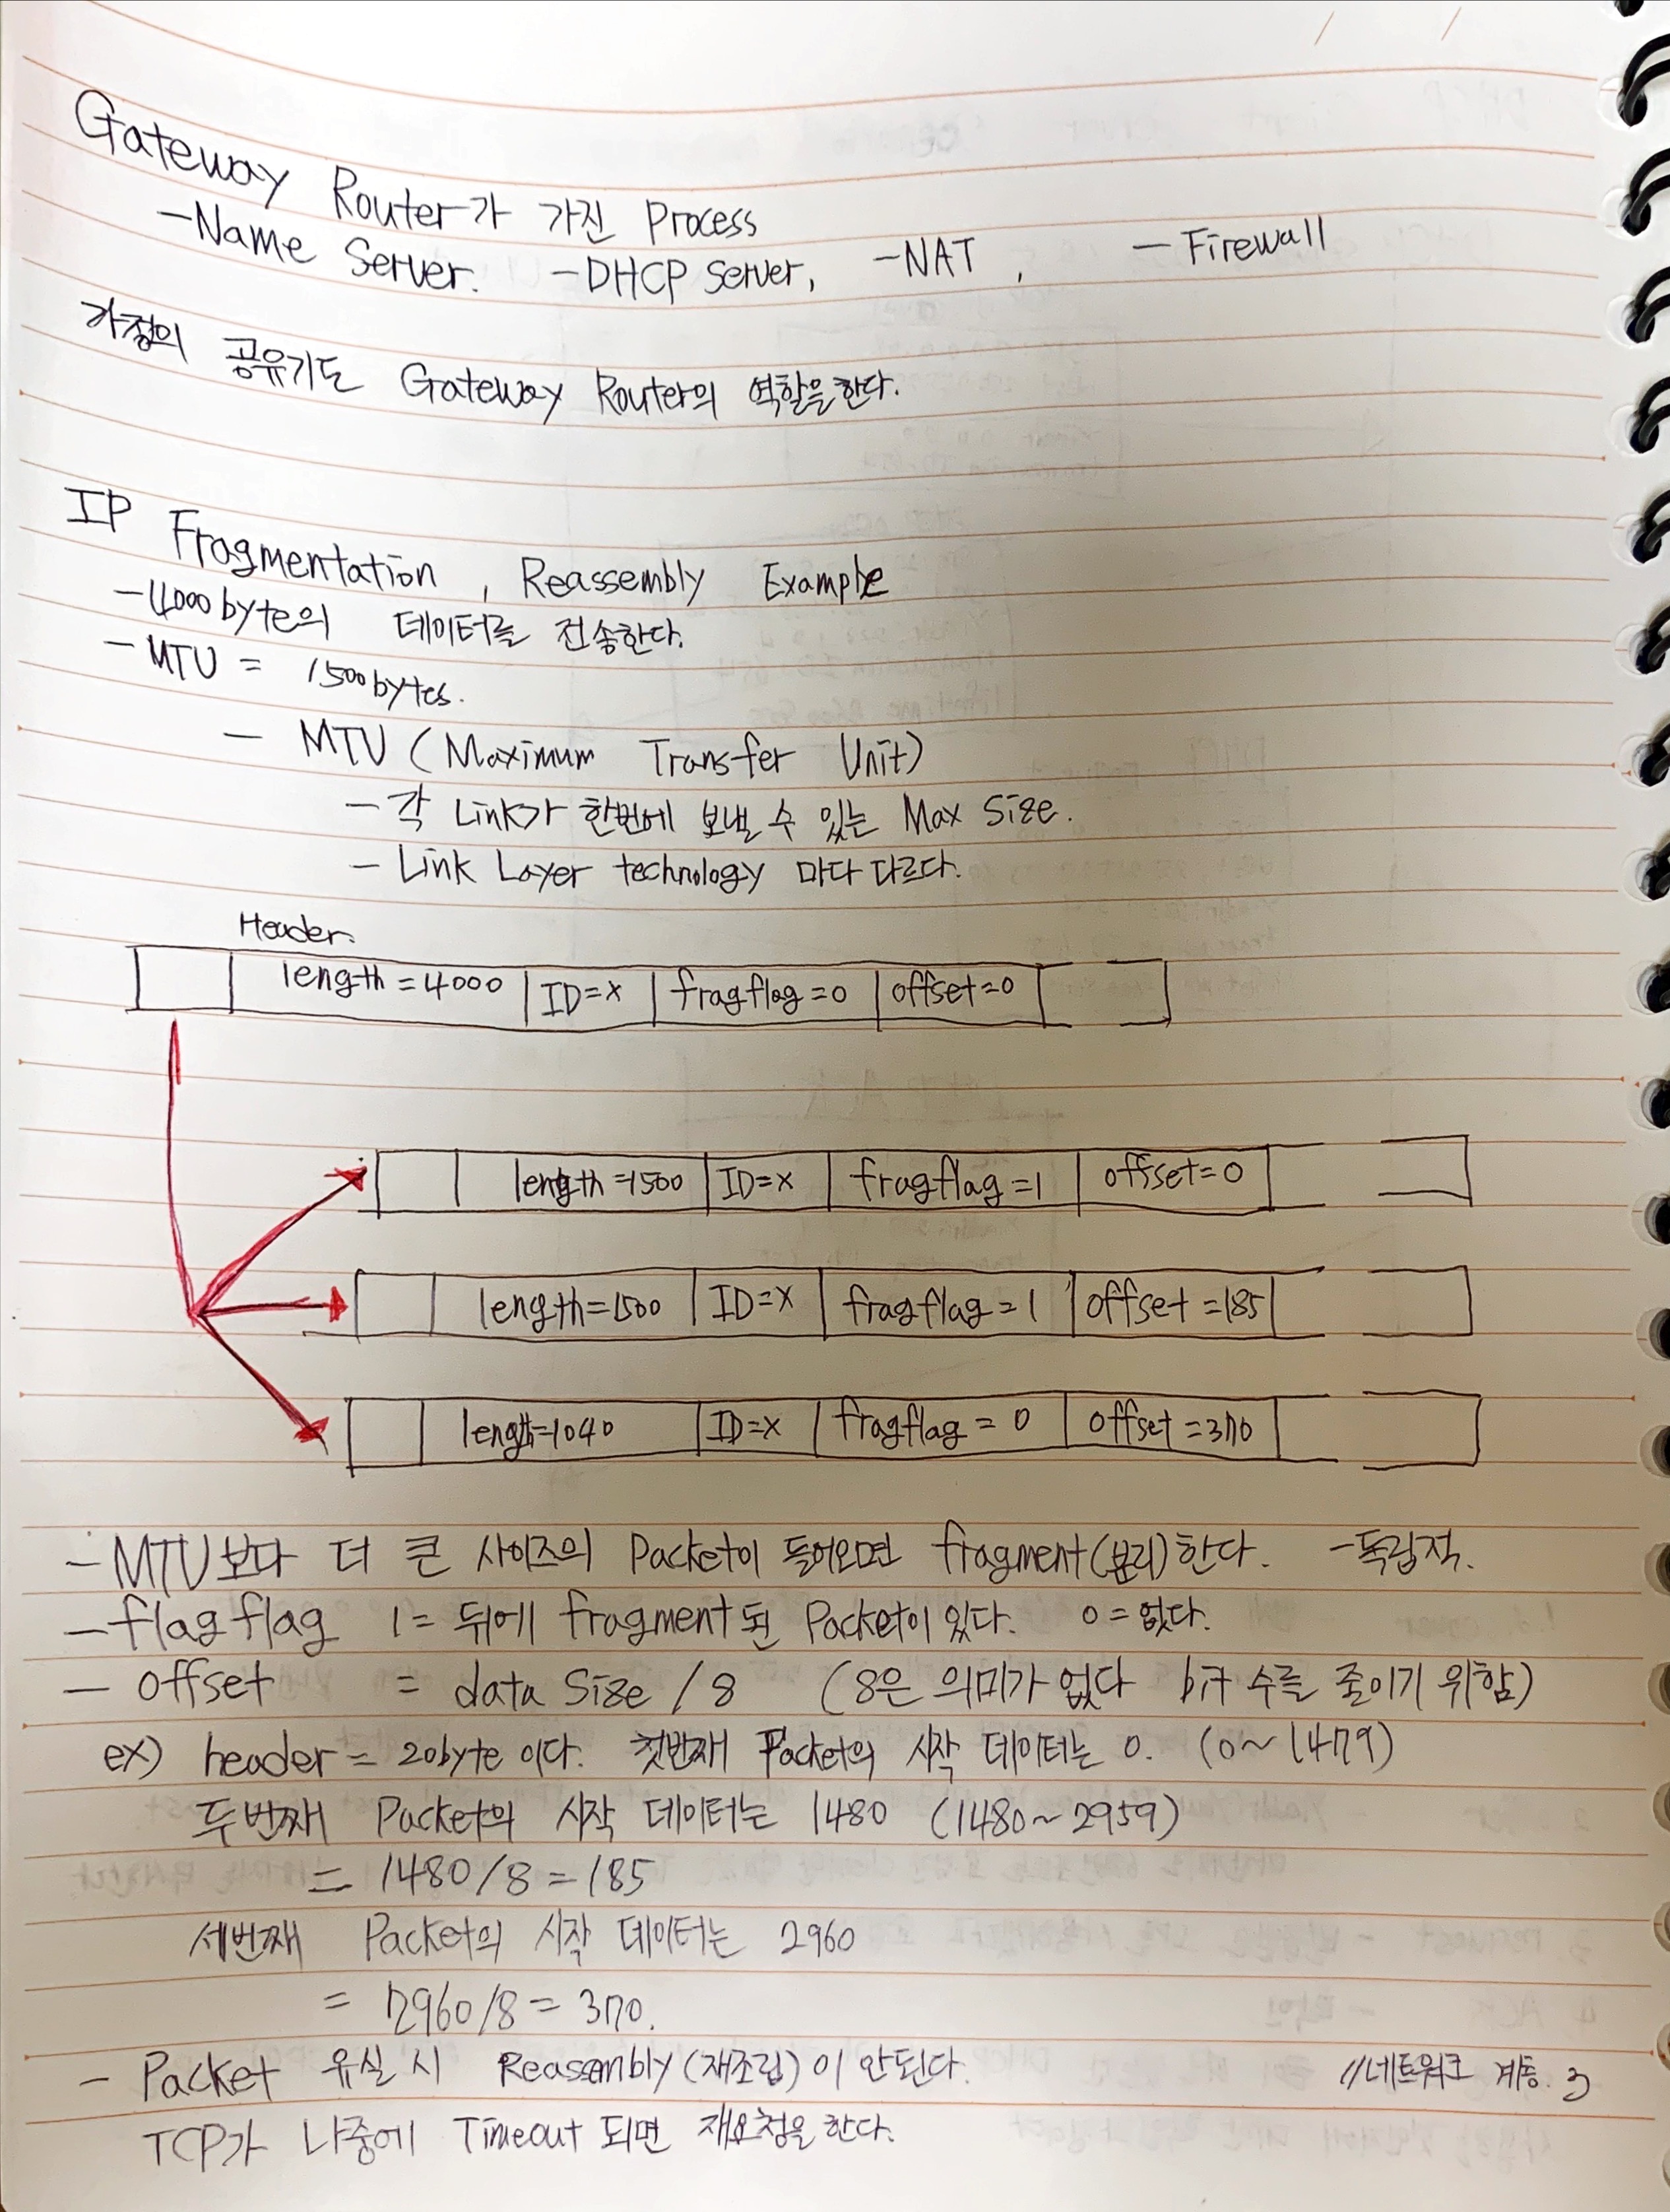 Gateway Router가 가진 Process
-Name Server. -DHCP Server, -NAT , -Firewall
가정의 공유기도 Gateway Router의 역할을한다.
IP Fragmentation , Reassembly Example
-4000byte의 데이터를 전송한다.
-MTU = 1500bytes.
- MTU (Maximum Transfer Unit)
-각 Link가 한번에 보낼 수 있는 Max Size.
- Link Layer technology 마다 다르다.
Header.
length=4000 ID=x fragflag=0 offset=0
length=1500 ID=x fragflag=1 offset=0
length=1500 ID=x fragflag=1 offset=185
length=1040 ID=x fragflag=0 offset=370
-MTU보다 더 큰 사이즈의 Packet이 들어오면 fragment(분리)한다. -독립적.
-flagflag 1= 뒤에 fragment된 Packet이 있다. 0=없다.
- offset = data Size /8 (8은 의미가 없다 bit 수를 줄이기 위함)
ex) header = 20byte 이다. 첫번째 Packet의 시작 데이터는 0. (0~1479)
두번째 Packet의 시작 데이터는 1480 (1480~2959)
= 1480/8=185
세번째 Packet의 시작 데이터는 2960
= 2960/8=370.
- Packet 유실 시 Reassembly(재조립)이 안된다.
//네트워크 계층.3
TCP가 나중에 Timeout 되면 재요청을 한다.